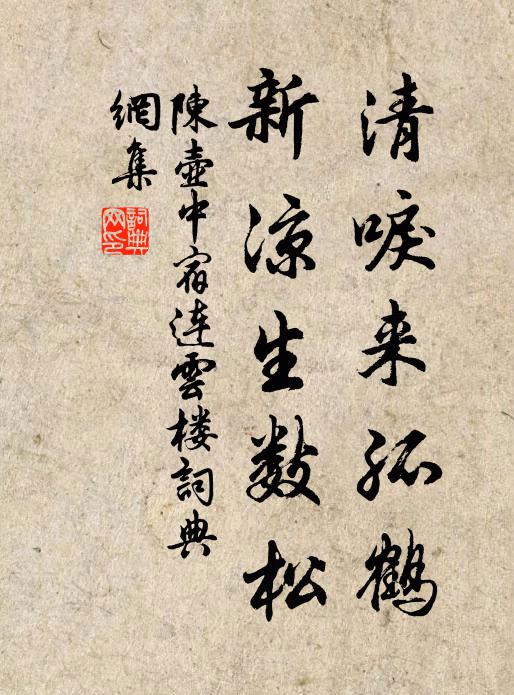 清唳来孤鹤
新凉生数松
陳壺中宿连雲楼詞典
網集
詞典
网印